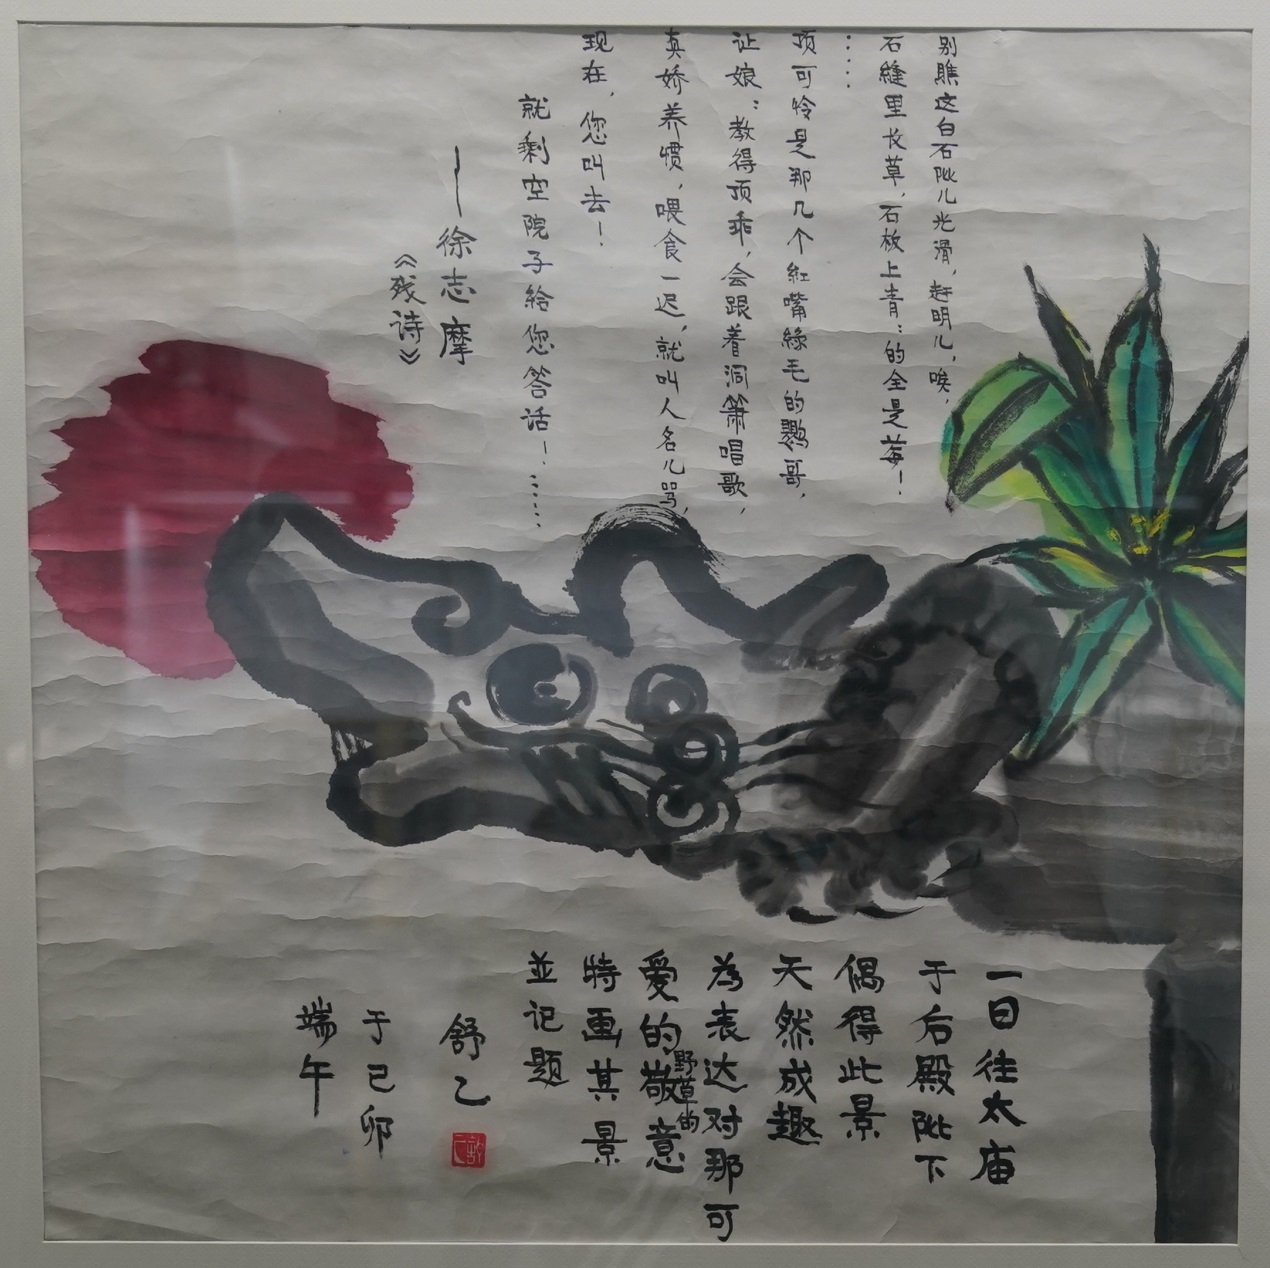 别瞧这白石阶儿光滑，赶明儿，唉，
石缝里长草，石板上青：的全是莓！
……
顶可怜是那几个红嘴绿毛的鹦哥，
让娘：教得顶乖，会跟着洞箫唱歌，
真娇养惯，喂食一迟，就叫人名儿骂，
现在，您叫去！
就剩空院子给您答话！……
——徐志摩
《残诗》
一日往太庙
于后殿阶下
偶得此景
天然成趣
为表达对那可
爱的野草的敬意
特画其景
並记题
舒乙
于己卯
端午
舒乙